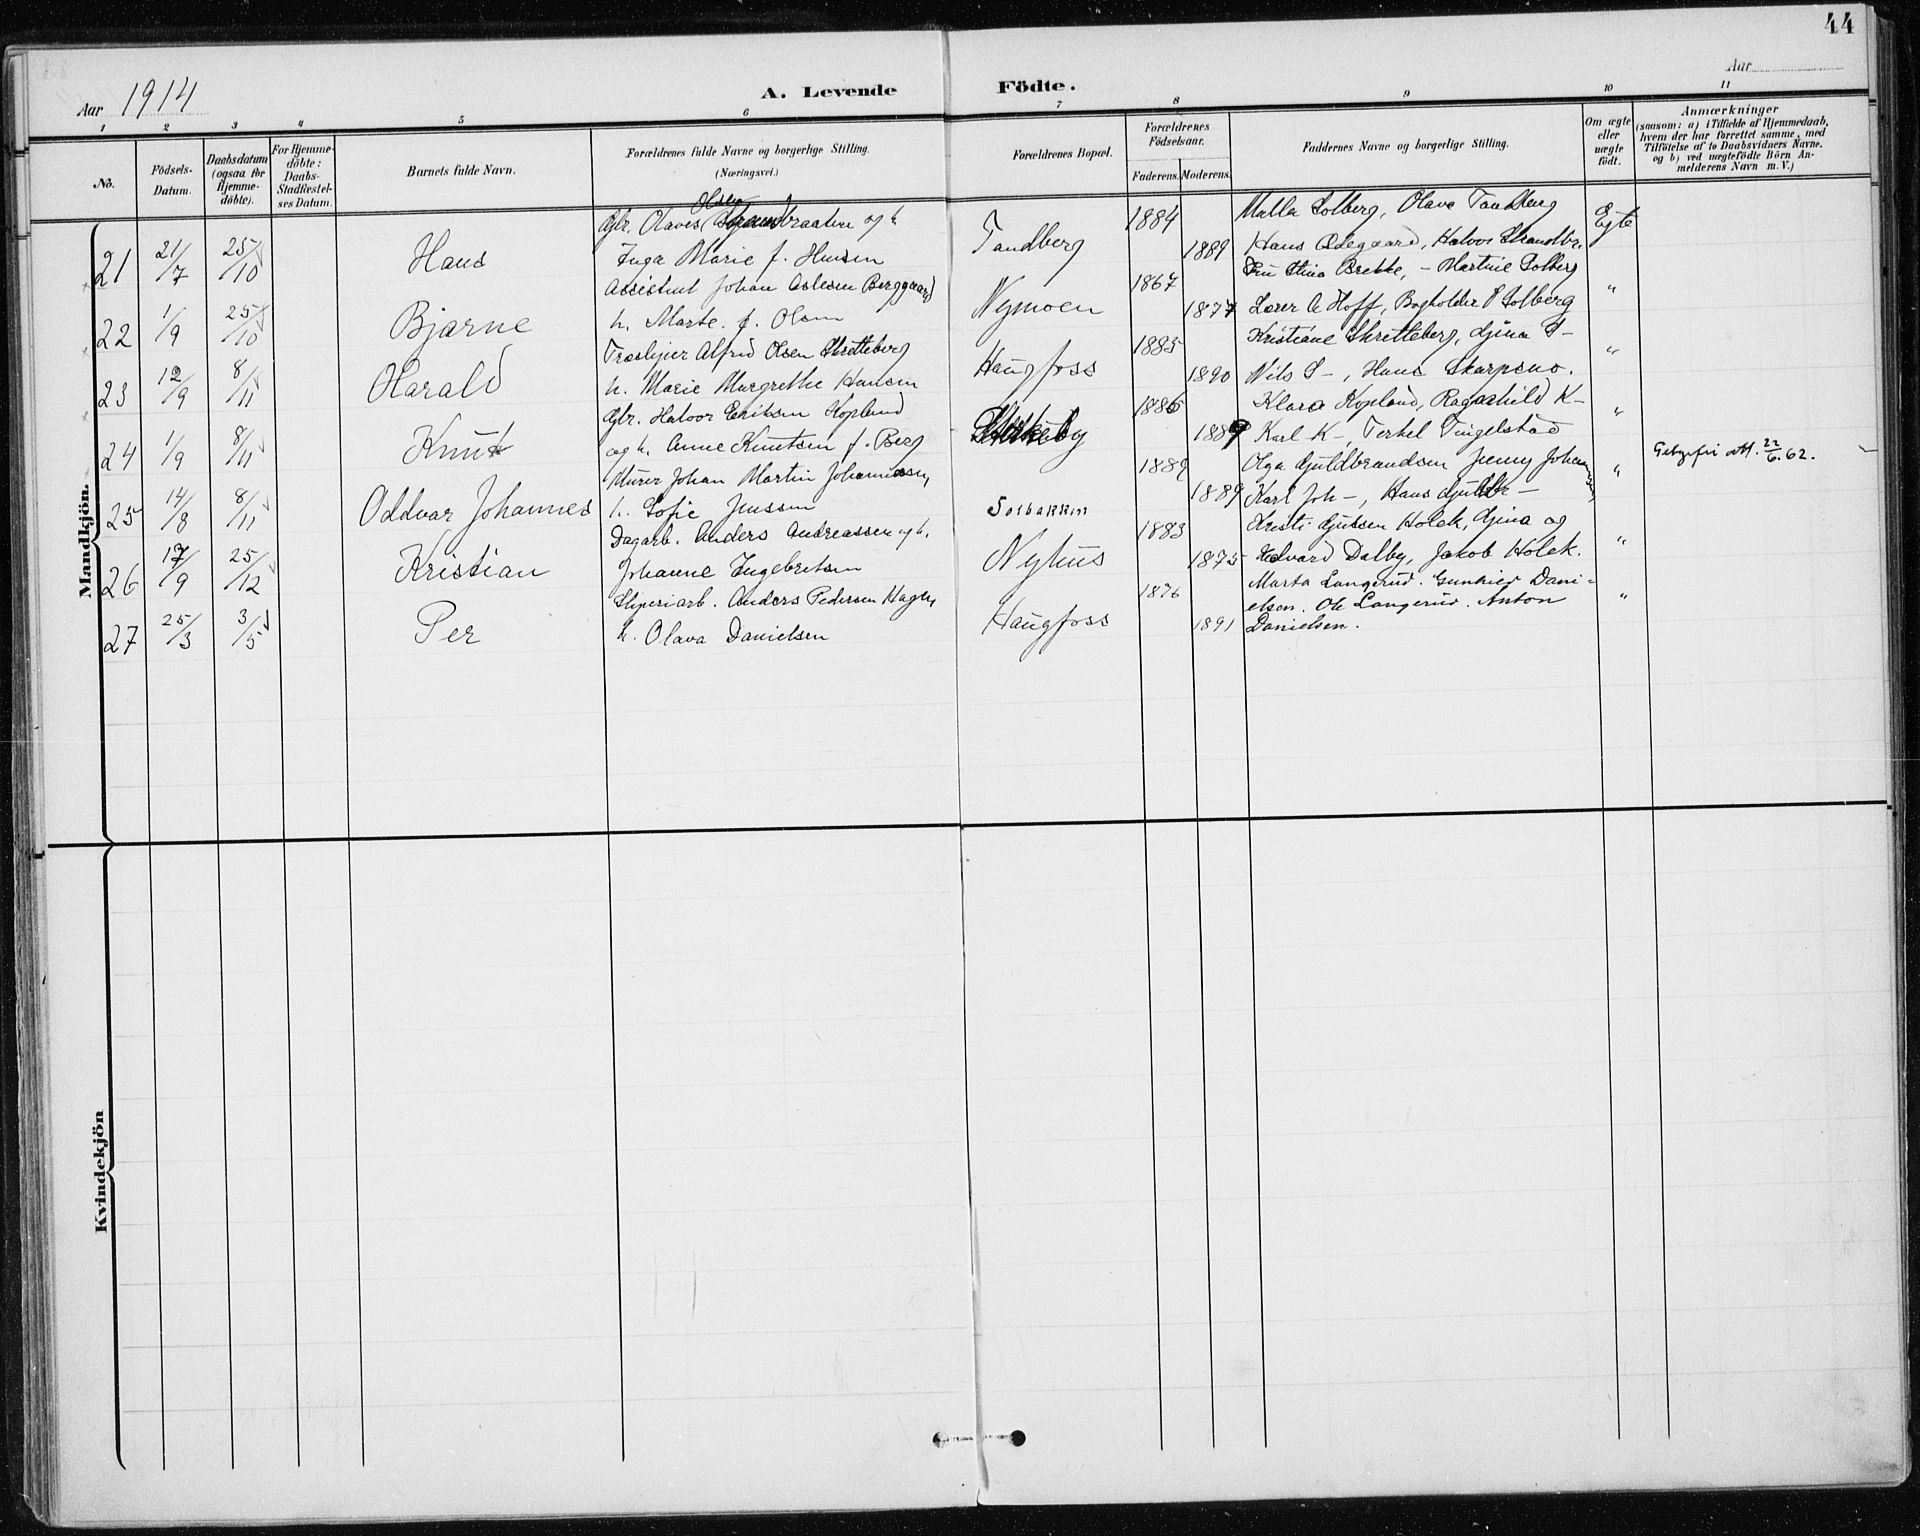 44
Aar 1914
A. Levende Födte.
Aar
1 2 3 4 5 6 7 8 9 10 11
No.
Födsels-
Datum.
Daabsdatum
(ogsaa for
Hjemme-
döbte).
For Hjemme-
döbte:
Daabs-
Stadfæstel-
ses Datum.
Barnets fulde Navn.
Forældrenes fulde Navne og borgerlige Stilling.
(Næringsvei.)
Forældrenes Bopæl.
Forældrenes
Födselsaar.
Faderens. Moderens.
Faddernes Navne og borgerlige Stilling.
Om ægte
eller
uægte
födt.
Anmærkninger
(saasom: a) i Tilfælde af Hjemmedaab,
hvem der har forrettet samme, med
Tilföielse af to Daabsvidners Navne,
og b) ved uægtefödte Börn An-
melderens Navn m. V.)
Mandkjön.
Olsen
Gbr. Olaves braaten og h
1884
Olava Tandberg
Egte
21 21/7 25/10 Hans
Inga Marie f. Hansen
Tandberg
1889
Hans Ødegaard, Halvor Strandbr.
Assistent Johan Aslesen Berggaard
1867
Stina Brekke, - Martine Solberg
22 1/9 25/10 Bjarne
h. Marte f. Olsen
Nymoen
1877
Lærer A Hoff, Bogholder P Solberg
"
Træsliper Alfred Olsen Skretteberg
1885
Kristiane Skretteberg, Gina S-
23 12/9 8/11 Harald
h. Marie Margrethe Hansen
Haugfoss
1890
Nils S-, Hans Skarpsno.
"
Gbr. Halvor Eriksen Kopland
1886
Klara Kopland, Ragnhild K-
24 1/9 8/11 Knut
og h. Anne Knutsen f. Berg
1889
Karl K-, Terkel Tingelstad
"
Murer Johan Martin Johannessen,
1889
Olga Guldbrandsen Jenny Johannsen
"
Gebyrfri att. 22/6. 62.
25 14/8 8/11 Oddvar Johannes
h. Sofie Jenssen
Solbakken
1889
Karl Joh-, Hans Guldbr-
Dagarb. Anders Andreassen og h.
1883
Holek, Gina og
26 17/9 25/12 Kristian
Johanne Engebretsen
Nyhus
1875
Halvard Dalby, Jakob Holek.
"
Sliperiarb. Anders Pedersen Hagen,
1876
Marta Langerud. Dani-
elsen. Ole Langerud. Anton
"
27 25/3 3/5 Per
h. Olava Danielsen
Haugfoss
1891
Danielsen.
Kvindekjön